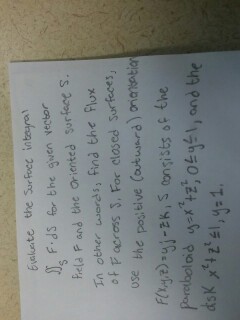 Evaluate the surface integral
∬s F·ds for the given vector
field F and the oriented surface S.
In other words, find the flux
of F across S. For closed surfaces,
use the positive (outward) orientation
F(x,y,z)=yj-zk, S consists of the
paraboloid y=x²+z², 0≤y≤1, and the
disk x²+z²≤1, y=1.